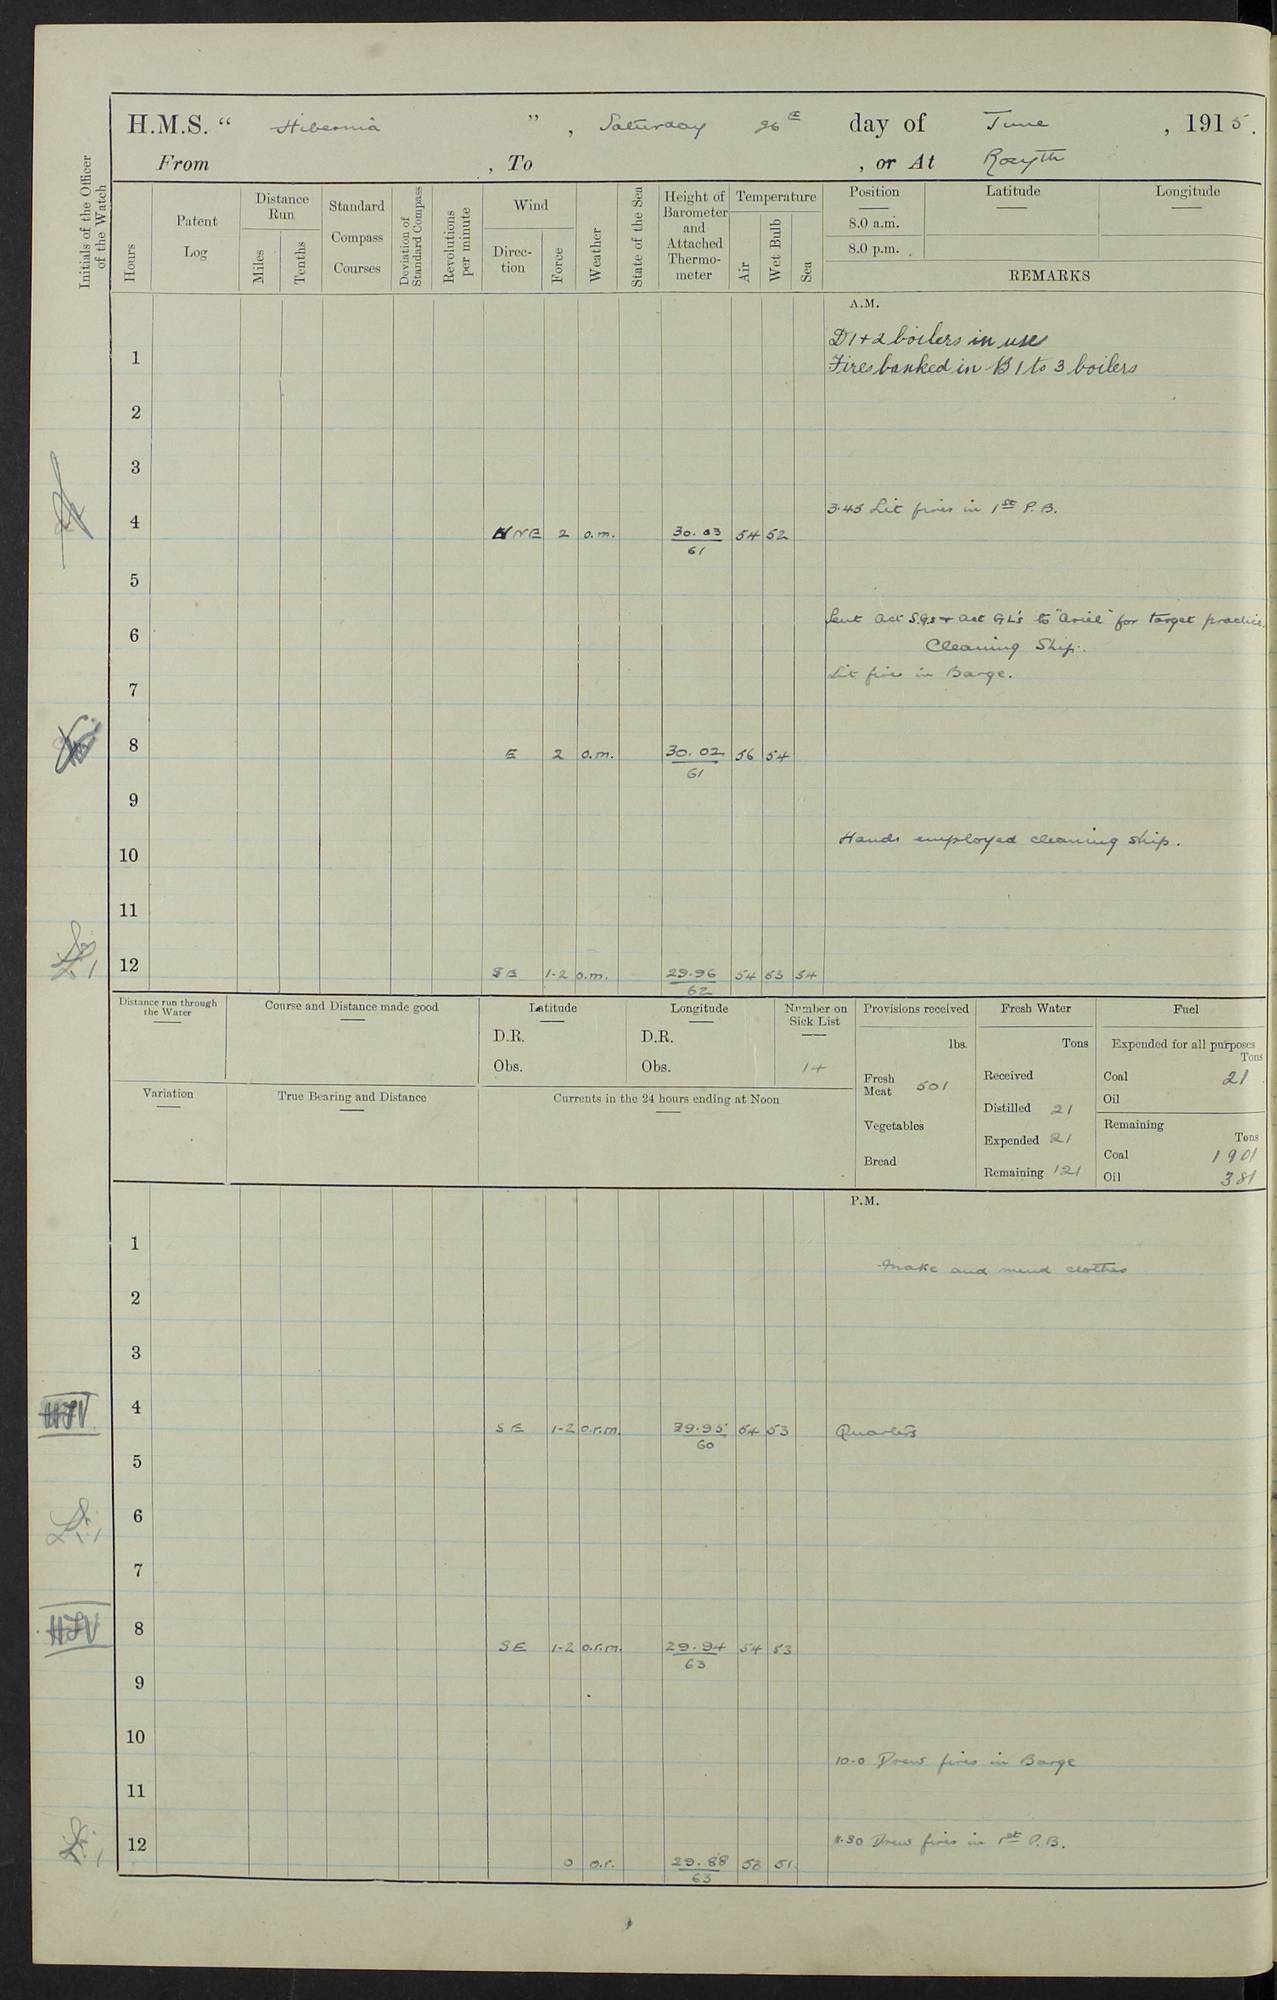 H.M.S. “ Hibernia ” , Saturday 26th day of June , 1915.
From , To , or At Rosyth
Initials of the Officer of the Watch
Hours
Patent Log
Distance Run
Miles
Tenths
Standard Compass Courses
Deviation of Standard Compass
Revolutions per minute
Wind
Direction
Force
Weather
State of the Sea
Height of Barometer and Attached Thermometer
Temperature
Air
Wet Bulb
Sea
Position Latitude Longitude
8.0 a.m.
8.0 p.m.
REMARKS
A.M.
D 1 + 2 boilers in use
1 Fires banked in B 1 to 3 boilers
2
3
3.45 Lit fires in 1st P.B.
4 NE 2 o.m. 30.03 54 52
61
5
Sent act S.G.s + act G L's to "Ariel" for target practice.
6 Cleaning Ship.
Lit fires in Barge.
7
8 E 2 o.m. 30.02 56 54
61
9
Hands employed cleaning ship.
10
11
12 SE 1-2 o.m. 29.96 54 53 54
62
Distance run through the Water
Course and Distance made good
Latitude
D.R.
Obs.
Longitude
D.R.
Obs.
Number on Sick List
14
Variation
True Bearing and Distance
Currents in the 24 hours ending at Noon
Provisions received
lbs.
Fresh Meat 501
Vegetables
Bread
Fresh Water
Tons
Received
Distilled 21
Expended 21
Remaining 121
Fuel
Expended for all purposes
Tons
Coal 21
Oil
Remaining
Tons
Coal 1901
Oil 381
P.M.
1
Make and mend clothes
2
3
4 SE 1-2 o.r.m. 29.95 54 53 Quarters
60
5
6
7
8 SE 1-2 o.r.m. 29.94 54 53
63
9
10
10.0 Drew fires in Barge
11
11.30 Drew fires in 1st P.B.
12 0 o.r. 29.88 53 51
63